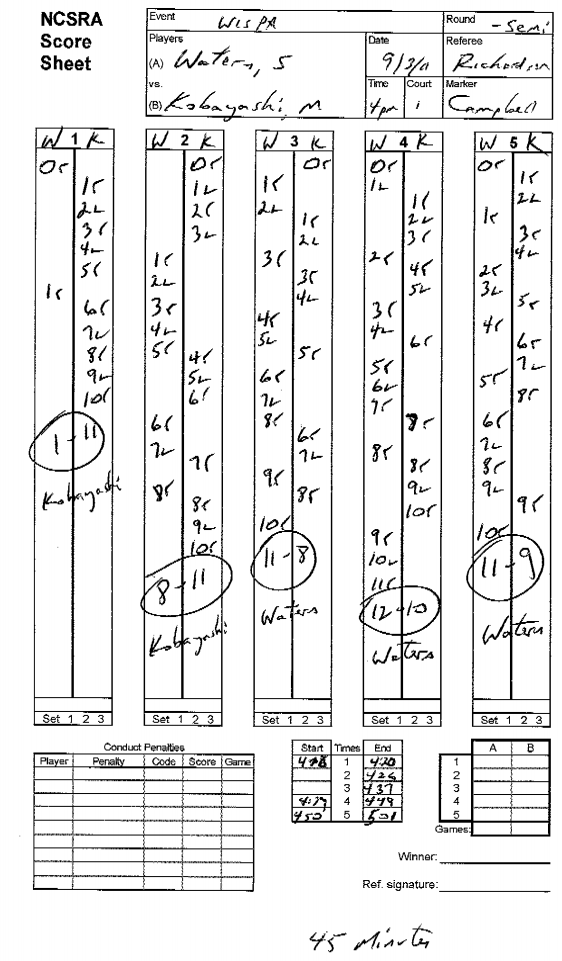 NCSRA
Score
Sheet
Event WISPA
Round - Semi
Players
(A) Waters, S
vs.
(B) Kobayashi, M
Date
9/3/11
Referee
Richardson
Time Court Marker
4pm 1 Campbell
W 1 K
0r
1r
2L
3r
4L
5r
1r
6r
7L
8r
9L
10r
1-11
Kobayashi
W 2 K
0r
1L
2r
3L
1r
2L
3r
4L
5r
4r
5L
6r
6r
7L
7r
8r
8r
9L
10r
8-11
Kobayashi
W 3 K
0r
1r
2L
1r
2L
3r
3r
4L
4r
5L
5r
6r
7L
8r
6r
7L
9r
8r
10r
11-8
Waters
W 4 K
0r
1L
1r
2L
3r
2r
4r
5L
3r
4L
6r
5r
6L
7r
7r
8r
8r
9L
10r
9r
10L
11r
12-10
Waters
W 5 K
0r
1r
2L
1r
3r
4L
2r
3L
5r
4r
6r
7L
5r
8r
6r
7L
8r
9L
9r
10r
11-9
Waters
Set 1 2 3
Set 1 2 3
Set 1 2 3
Set 1 2 3
Set 1 2 3
Conduct Penalties
Player Penalty Code Score Game
Start Times End
1 420
2 426
3 437
4:39 4 449
450 5 501
A B
1
2
3
4
5
Games:
Winner:
Ref. signature:
45 Minutes